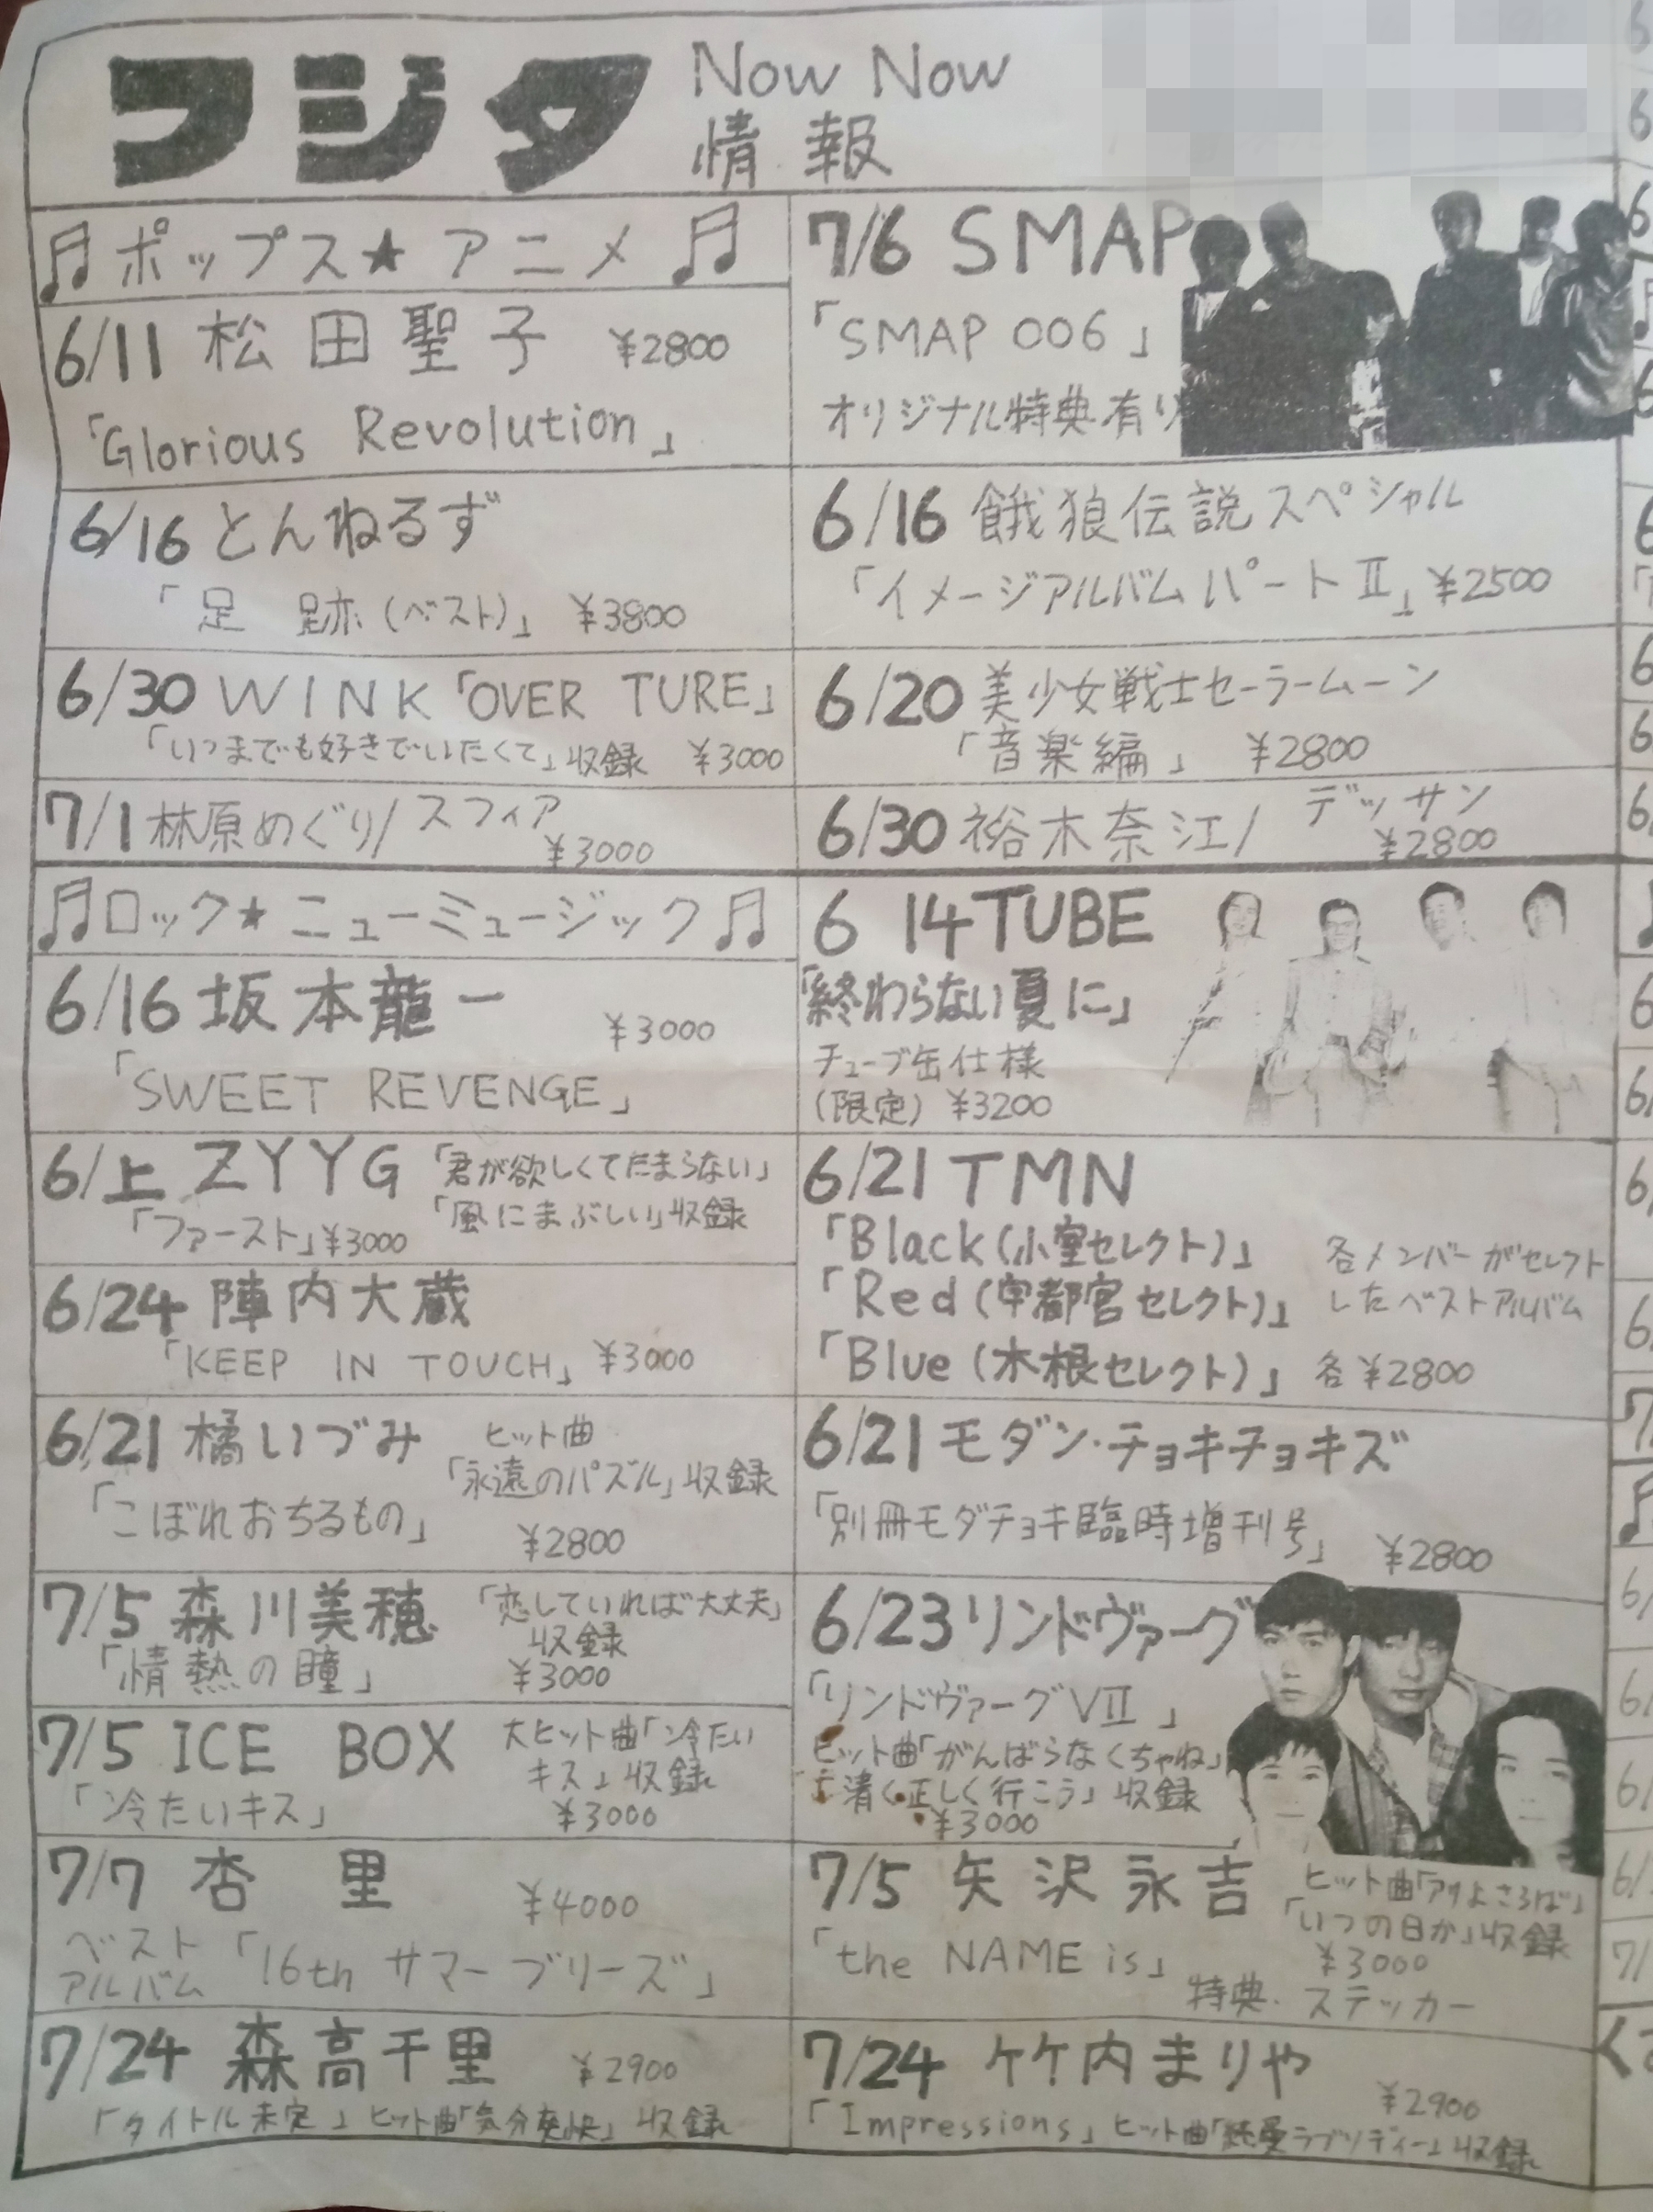 フジタ
Now Now
情報
♫ポップス★アニメ♫
6/11 松田聖子 ¥2800
「Glorious Revolution」
6/16 とんねるず
「足 跡(ベスト)」 ¥3800
6/30 WINK「OVER TURE」
「いつまでも好きでいたくて」収録 ¥3000
7/1 林原めぐり/スフィア
¥3000
7/6 SMAP
「SMAP 006」
オリジナル特典有り
6/16 餓狼伝説スペシャル
「イメージアルバムパートⅡ」¥2500
6/20 美少女戦士セーラームーン
「音楽編」 ¥2800
6/30 裕木奈江/デッサン
¥2800
♫ロック★ニューミュージック♫
6/16 坂本龍一
¥3000
「SWEET REVENGE」
6/上 ZYYG「君が欲しくてたまらない」
「風にまぶしい」収録
「ファースト」¥3000
6/24 陣内大蔵
「KEEP IN TOUCH」¥3000
6/21 橘いづみ ヒット曲
「永遠のパズル」収録
「こぼれおちるもの」
¥2800
7/5 森川美穂「恋していれば大丈夫」
収録
「情熱の瞳」 ¥3000
7/5 ICE BOX 大ヒット曲「冷たい
キス」収録
「冷たいキス」 ¥3000
7/7 杏里 ¥4000
ベスト
アルバム「16th サマーブリーズ」
7/24 森高千里 ¥2900
「タイトル未定」ヒット曲「気分爽快」収録
6 14 TUBE
「終わらない夏に」
チューブ缶仕様
(限定) ¥3200
6/21 TMN
「Black(小室セレクト)」 各メンバーがセレクト
「Red(宇都宮セレクト)」 したベストアルバム
「Blue(木根セレクト)」 各¥2800
6/21 モダン・チョキチョキズ
「別冊モダチョキ臨時増刊号」 ¥2800
6/23 リンドヴァーグ
「リンドヴァーグⅦ」
ヒット曲「がんばらなくちゃね」
「清く正しく行こう」収録
¥3000
7/5 矢沢永吉 ヒット曲「アリよさらば」
「いつの日か」収録
「the NAME is」 ¥3000
特典・ステッカー
7/24 竹内まりや
¥2900
「Impressions」ヒット曲「純愛ラプソディー」収録